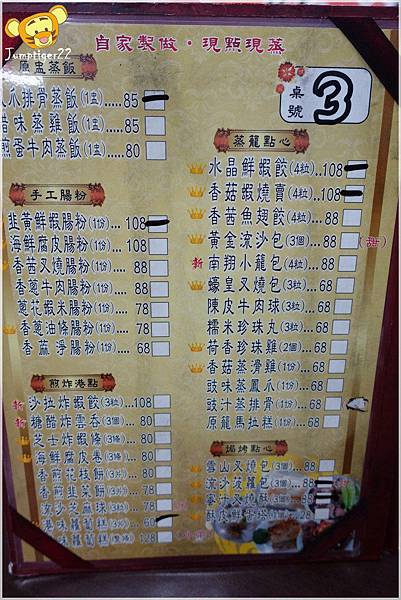 Jumptiger22
自家製做・現點現蒸
原盅蒸飯
爪排骨蒸飯(1盅).....85
腊味蒸雞飯(1盅)....85
煎蛋牛肉蒸飯.....80
桌號
3
手工腸粉
韭黃鮮蝦腸粉(1份)...108
海鮮腐皮腸粉(1份)...108
香茜叉燒腸粉(1份)....88
香蔥牛肉腸粉(1份)....88
蔥花蝦米腸粉(1份)....78
香蔥油條腸粉(1份)....78
香蔴淨腸粉(1份)....68
煎炸港點
新 沙拉炸蝦餃(3粒)....108
新 糖醋炸雲吞(3個)....88
芝士炸蝦條(3條)....88
海鮮腐皮卷(3條)....88
香煎花枝餅(3片)....88
香煎韭菜餅(3片)....78
流沙芝麻球(3粒)....78
港味蘿蔔糕(3片)....60
味蘿蔔糕(整條)128
蒸籠點心
水晶鮮蝦餃(4粒)..108
香菇蝦燒賣(4粒)..108
香茜魚翅餃(4粒)....88
黃金流沙包(3個)....88
新 南翔小籠包(4粒)....88
蠔皇叉燒包(3個)....68
陳皮牛肉球(3粒)....68
糯米珍珠丸(3粒)....68
荷香珍珠雞(2個)....68
香菇蒸滑雞(1份)....68
豉味蒸鳳爪(1份)....68
豉汁蒸排骨(1份)....68
原籠馬拉糕(1份)....68
焗烤點心
雪山叉燒包(3個)...88
流沙菠蘿包(3個)...88
蜜汁叉燒酥(3個)...68
酥皮鮮蛋塔